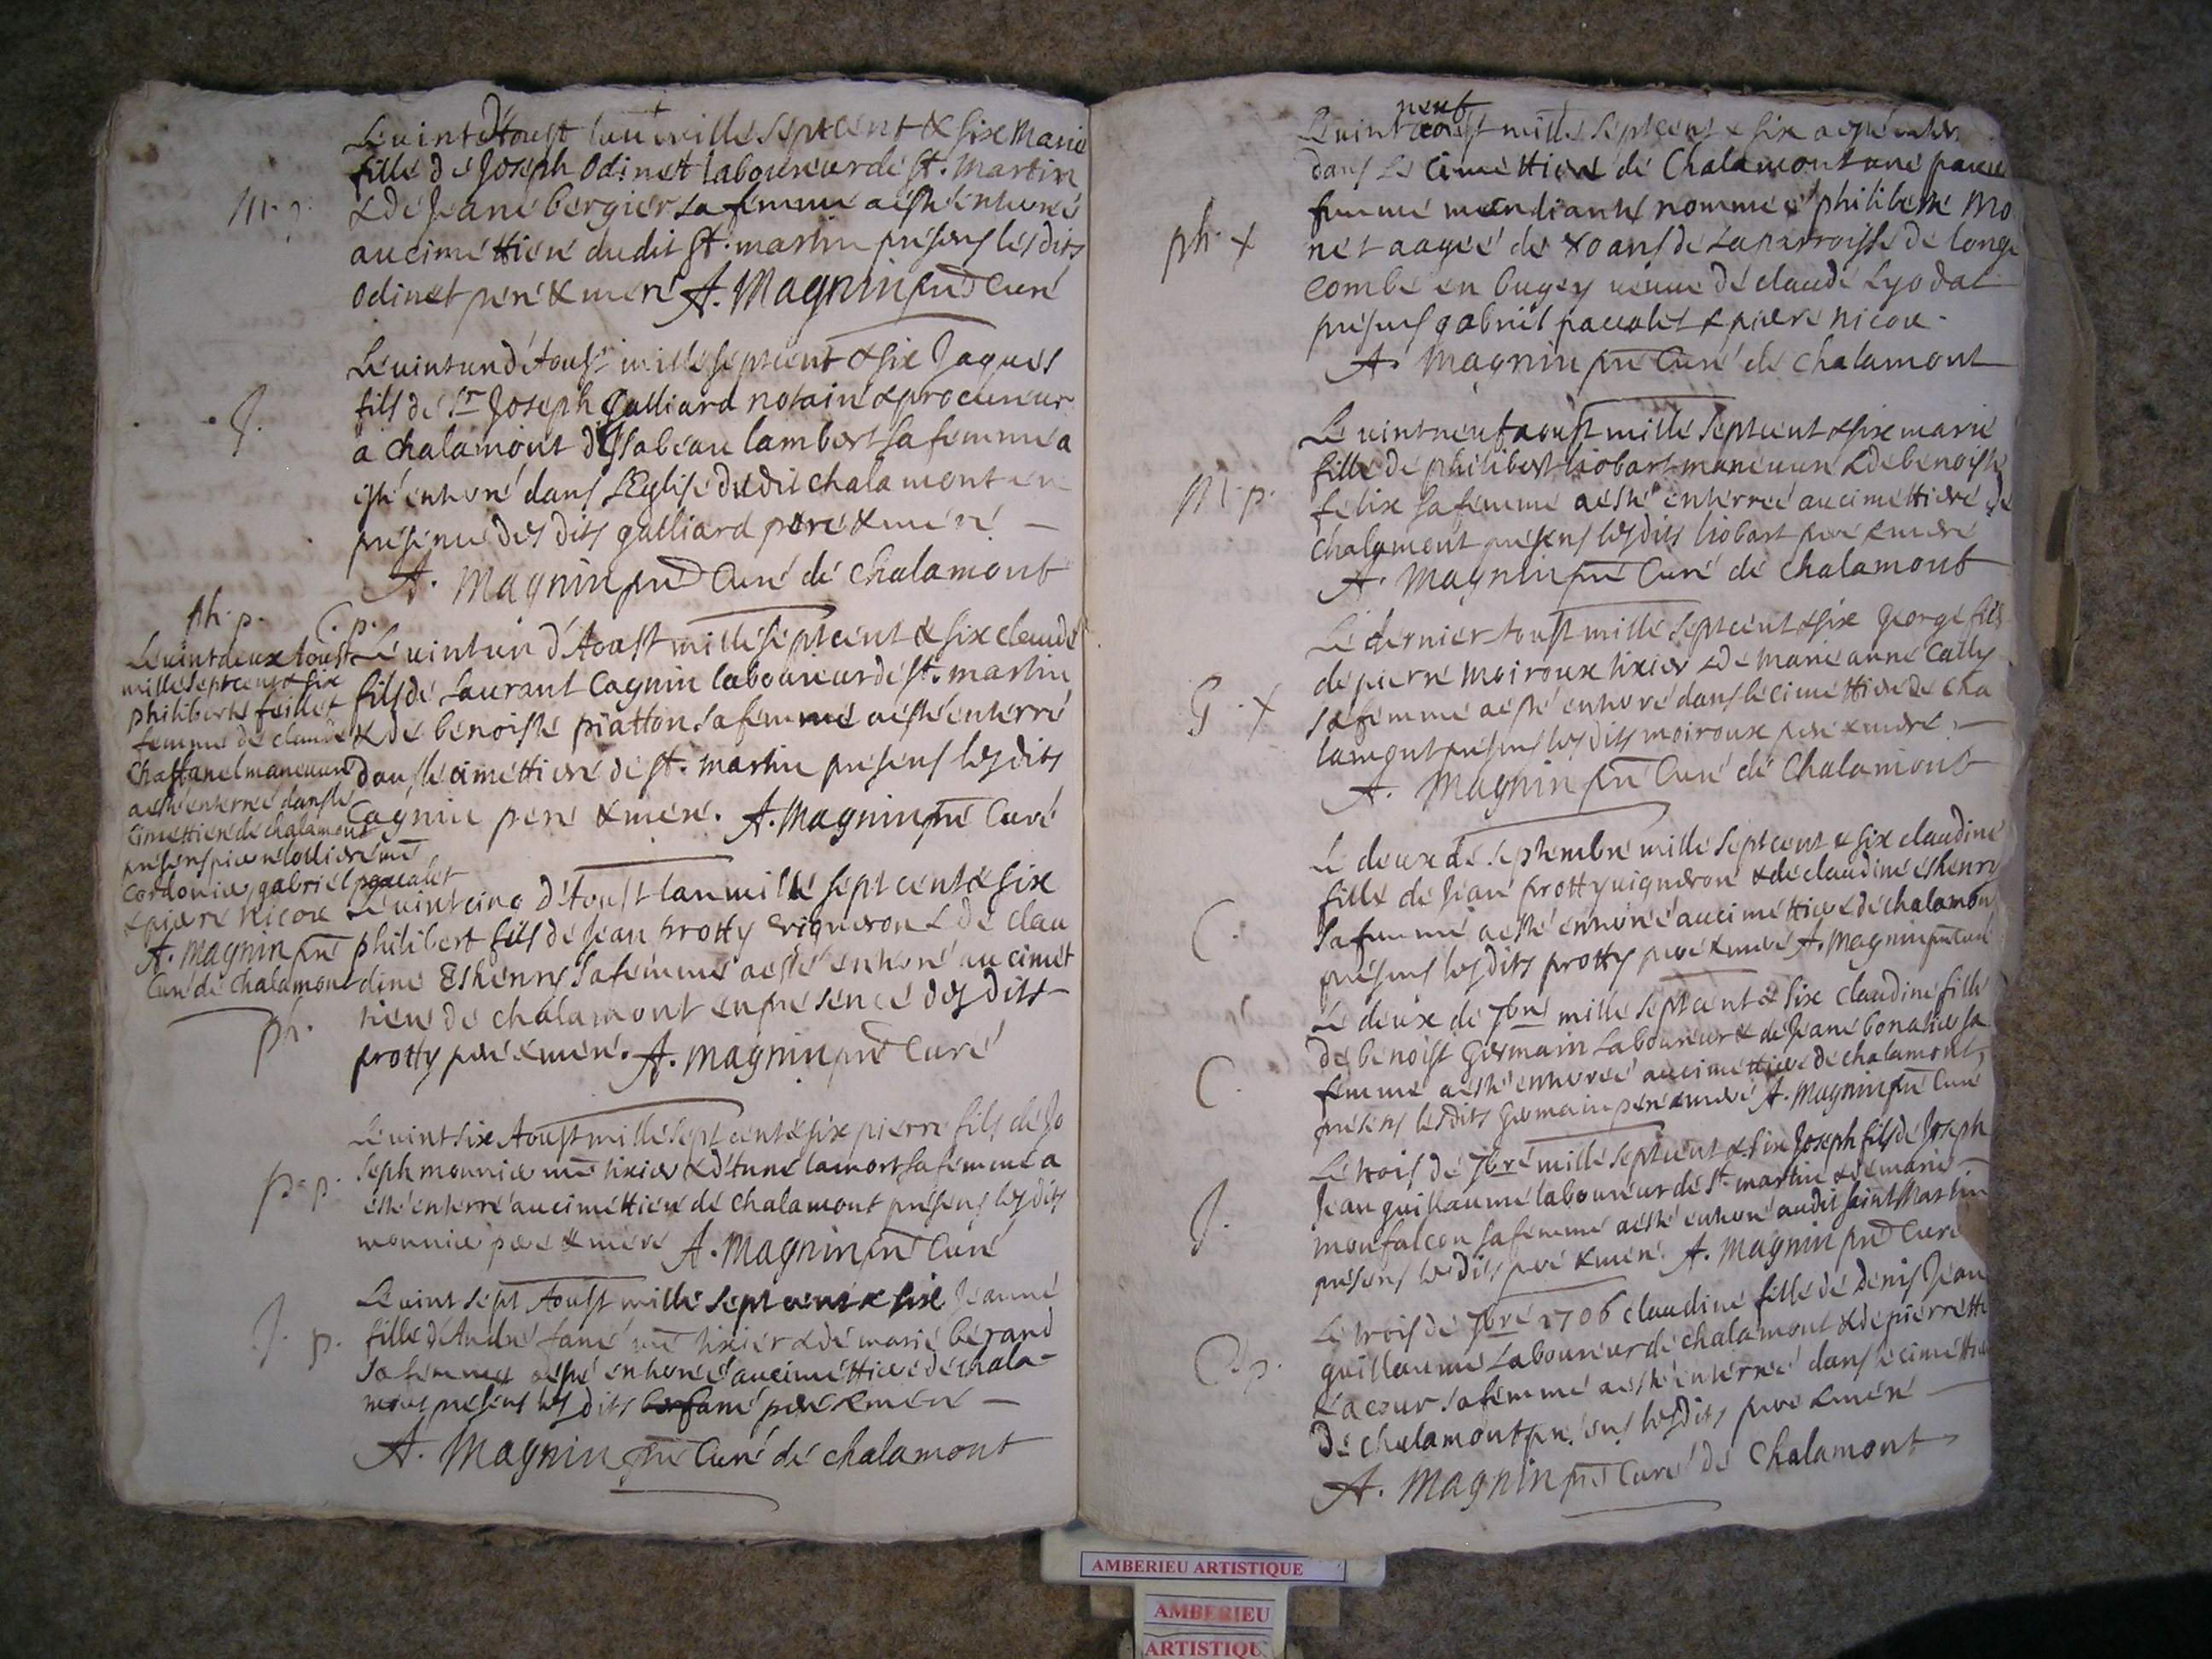 Le vint d'Aoust lan mille sept cent & six Marie
fille de Joseph Odinet laboureur de st. Martin
& de Jeane bergier sa femme a esté enterré
au cimettiere du dit st. martin présens lesdits
Odinet pere & mere A. Magnin pre Curé
J.
Le vint un d'Aoust mille sept cent & six Jaques
fils de Sr Joseph Galliard notaire & procureur
a Chalamont d'Issabeau lambert sa femme a
esté enterré dans L'Eglise du dit chalamont en
présence des dits galliard pere & mere
A. Magnin pre Curé de Chalamont
ph. p.
Le vint deux Aoust
mille sept cent & six
philiberte feillet
femme de claude
Chaffanel maneuvre
a esté enterreé dans le
Cimettiere de chalamont
présens piere mre
Cordonier, gabriel pacalet
& piere Nicou
A. Magnin pre
Curé de Chalamont
C. p.
Le vint un d'Aoust mille sept cent & six claude
fils de Laurant Cagnin laboureur de st. martin
& de benoiste piatton sa femme a esté enterré
dans le cimettiere de st. martin présens lesdits
Cagnin pere & mere. A. Magnin pre Curé
Le vint cinq d'Aoust lan mille sept cent & six
philibert fils de Jean protty vigneron & de clau
dine Eshenry sa femme a esté enterré au cimet
tiere de chalamont en présence desdits
protty pere & mere. A. Magnin pre Curé
ph.
Le vint six Aoust mille sept cent & six pierre fils de Jo
seph mounier mre tixier & d' lamort sa femme a
esté enterré au cimettiere de chalamont présens lesdits
mounier pere & mere A. Magnin pre Curé
p. p.
Le vint sept Aoust mille sept cent & six Jeanne
fille d'André fané mre tixier & de marie bérand
sa femme a esté enterreé au cimettiere de chala-
mont présens les dits fané pere & mere
A. Magnin pre Curé de chalamont
J. p.
neuf
Le vint aoust mille sept cent & six a esté enter
dans Le cimettiere de Chalamont une pauvre
femme mendiante nommeé philiberte Mo
net aageé de 80 ans de La parroisse de longe
combe en bugey veuve de claude Lyodat
présens gabriel paccalet & piere nicou.
A. Magnin pre Curé de chalamont
ph. x
Le vint neuf aoust mille sept cent & six marie
fille de philibert liobart maneuvre & de benoiste
felix sa femme a esté enterreé au cimettiere de
chalamont présens lesdits liobart pere & mere
A. Magnin pre Curé de chalamont
M. p.
Le dernier Aoust mille sept cent & six george fils
de pierre Moiroux tixier & de Marie anne Cally
sa femme a esté enterré dans le cimettiere de cha
lamont présens lesdits moiroux pere & mere.
A. Magnin pre Curé de Chalamont
G. x
Le deux de septembre mille sept cent & six claudine
fille de Jean protty vigneron & de claudine eshenry
sa femme a esté enterreé au cimettiere de chalamon
présens lesdits protty pere & mere A. Magnin pre Curé
C.
Le deux de 7bre mille sept cent & six claudine fille
de benoist Germain Laboureur & de Jeane bonatier sa
femme a esté enterreé au cimettiere de chalamont,
présens lesdits Germain pere & mere A. Magnin pre Curé
C.
Le trois de 7bre mille sept cent & six Joseph fils de Joseph
Jean guillaume laboureur de st. martin & de marie
monfalcon sa femme a esté enterré audit saint Martin
présens lesdits pere & mere. A. Magnin pre Curé
J.
Le trois de 7bre 1706 claudine fille de Denis Jean
guillaume Laboureur de chalamont & de pierrette
Lacour sa femme a esté enterreé dans le cimettiere
de chalamont présens lesdits pere & mere
A. Magnin pre Curé de Chalamont
C. p.
AMBERIEU ARTISTIQUE
AMBERIEU
ARTISTIQU